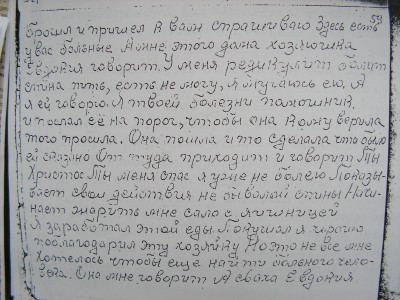 59
бросил и пришел к вам спрашиваю Здесь есть
у вас больные А мне этого дома хозяюшка
Евдокия говорит. У меня радикулит болит
спина пть, есть не могу, я мучаюсь ею. А
я ей говорю. Я твоей болезни помощник,
и послал её на порог, чтобы она кому верила
того просила. Она пошла и что сделала что было
ей сказано От туда приходит и говорит Ты
Христос Ты меня спас я уже не болею Показы-
вает свои действия не бывалой спины Начи-
нает жарить мне сало с яичницей
Я заработал этой еды. Покушал я хорошо
поблагодарил эту хозяйку Но это не все мне
хотелось чтобы еще найти больного чело-
века. Она мне говорит А сваха Евдокия